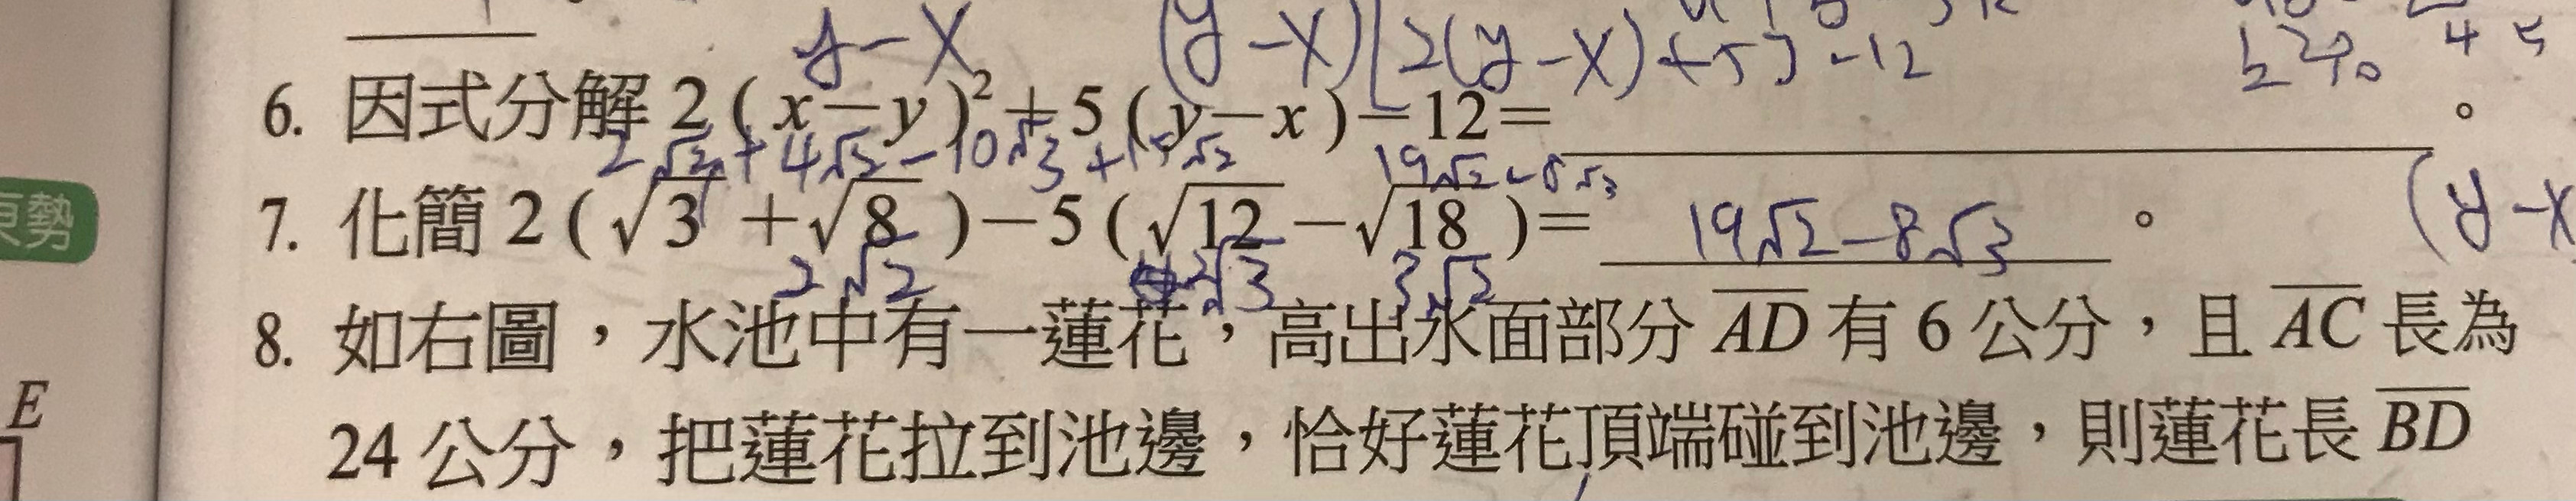 y-x (y-x)[2(y-x)+5]-12
6. 因式分解 2(x-y)²+5(y-x)-12=。
+4√2-10√3+15√2 19√2-8√3
7. 化簡 2(√3+√8)-5(√12-√18)= 19√2-8√3。
(y-x
2√2 2√3 3√2
8. 如右圖，水池中有一蓮花，高出水面部分 AD 有 6 公分，且 AC 長為
24 公分，把蓮花拉到池邊，恰好蓮花頂端碰到池邊，則蓮花長 BD
E